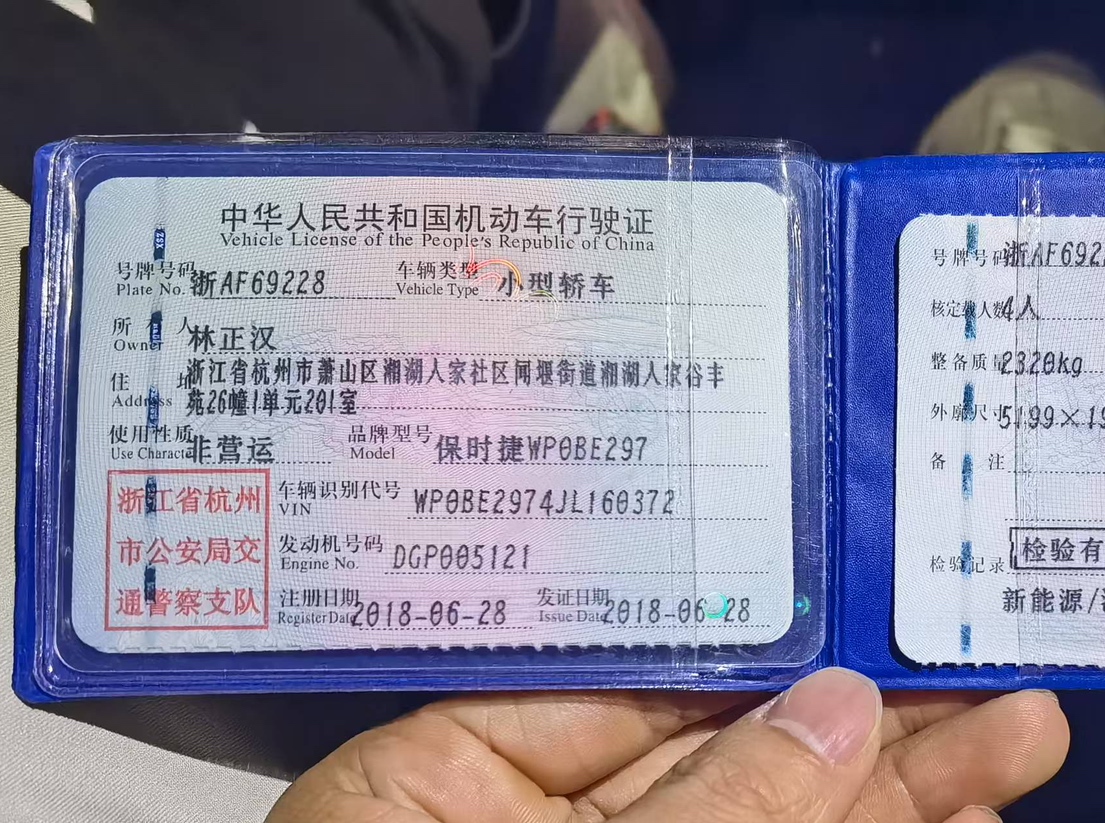 中华人民共和国机动车行驶证
Vehicle License of the People's Republic of China
号牌号码 浙AF69228 车辆类型 小型轿车
Plate No. Vehicle Type
所有人 林正汉
Owner
住址 浙江省杭州市萧山区湘湖人家社区闻堰街道湘湖人家谷丰
Address 苑26幢1单元201室
使用性质 非营运 品牌型号 保时捷WP0BE297
Use Character Model
浙江省杭州
市公安局交
通警察支队
车辆识别代号 WP0BE2974JL160372
VIN
发动机号码 DGP005121
Engine No.
注册日期 2018-06-28 发证日期 2018-06-28
Register Date Issue Date
号牌号码 浙AF692
核定载人数 4人
整备质量 2320kg
外廓尺寸 5199×19
备注
检验记录 检验有
新能源/